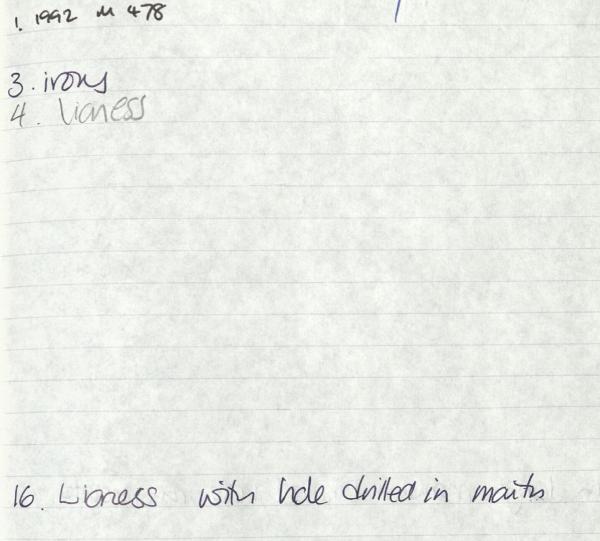 1. 1992 M 478
3. irons
4. Lioness
16. Lioness with hole drilled in mouth